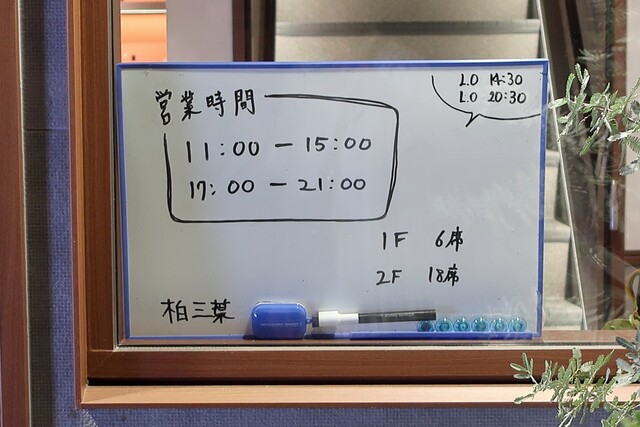 L.O 14:30
L.O 20:30
営業時間
11:00 - 15:00
17:00 - 21:00
1F 6席
2F 18席
柏三葉